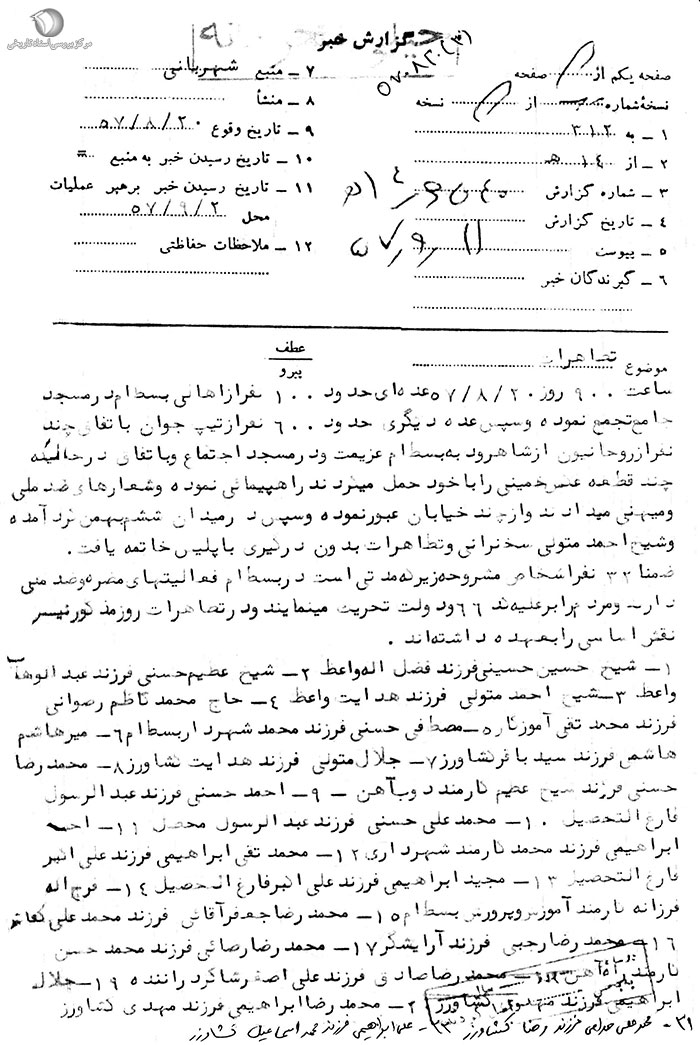 مرکز بررسی اسناد تاریخی
گزارش خبر
صفحه یکم از صفحه
نسخه شماره از نسخه
۱ - به ۳۱۲
۲ - از ۱۴ هـ
۳ - شماره گزارش
۴ - تاریخ گزارش
۵ - پیوست
۶ - گیرندگان خبر
۷ - منبع شهربانی
۸ - منشأ
۹ - تاریخ وقوع ۵۷/۸/۲۰
۱۰ - تاریخ رسیدن خبر به منبع =
۱۱ - تاریخ رسیدن خبر برهبر عملیات
محل ۵۷/۹/۲
۱۲ - ملاحظات حفاظتی
موضوع تظاهرات
عطف
پیرو
ساعت ۹۰۰ روز ۵۷/۸/۲۰ عده‌ای حدود ۱۰۰ نفر از اهالی بسطام در مسجد
جامع تجمع نموده و سپس عده دیگری حدود ۶۰۰ نفر از تیپ جوان با تفاق چند
نفر از روحانیون از شاهرود به بسطام عزیمت و در مسجد اجتماع و باتفاق در حالیکه
چند قطعه عکس خمینی را با خود حمل میکردند راهپیمائی نموده و شعارهای ضد ملی
و میهنی میدادند و از چند خیابان عبور نموده و سپس در میدان ششم بهمن گرد آمده
و شیخ احمد متولی سخنرانی و تظاهرات بدون درگیری با پلیس خاتمه یافت.
ضمنا ۲۲ نفر اشخاص مشروحه زیر که مدتی است در بسطام فعالیتهای مضره و ضد ملی
دارند و مردم را بر علیه ۶۶ و دولت تحریک مینمایند و در تظاهرات روز مذکور نیز
نقش اساسی را بعهده داشته‌اند.
۱- شیخ حسین حسینی فرزند فضل اله واعظ ۲- شیخ عظیم حسنی فرزند عبدالوهاب
واعظ ۳- شیخ احمد متولی فرزند هدایت واعظ ۴- حاج محمد کاظم رضوانی
فرزند محمد تقی آموزگار ۵- مصطفی حسنی فرزند محمد شهردار بسطام ۶- میرهاشم
هاشمی فرزند سید باقر کشاورز ۷- جلال متولی فرزند هدایت کشاورز ۸- محمد رضا
حسنی فرزند شیخ عظیم کارمند ذوب آهن - ۹- احمد حسنی فرزند عبدالرسول
فارغ التحصیل ۱۰- محمد علی حسنی فرزند عبدالرسول محصل ۱۱- احمد
ابراهیمی فرزند محمد کارمند شهرداری ۱۲- محمد تقی ابراهیمی فرزند علی اکبر
فارغ التحصیل ۱۳- مجید ابراهیمی فرزند علی اکبر فارغ التحصیل ۱۴- فرج اله
فرزانه کارمند آموزش و پرورش بسطام ۱۵- محمد رضا جعفر آقائی فرزند محمد علی کفاش
۱۶- محمد رضا رجبی فرزند آرایشگر ۱۷- محمد رضا رضائی فرزند محمد حسن
کارمند راه آهن ۱۸- محمد رضا صادقی فرزند علی اصغر شاگرد راننده ۱۹- جلال
ابراهیمی فرزند مهدی کشاورز ۲۰- محمد رضا ابراهیمی فرزند مهدی کشاورز
۲۱- محمد علی فرزند رضا کشاورز ۲۲- علی ابراهیمی فرزند محمد اسماعیل کشاورز